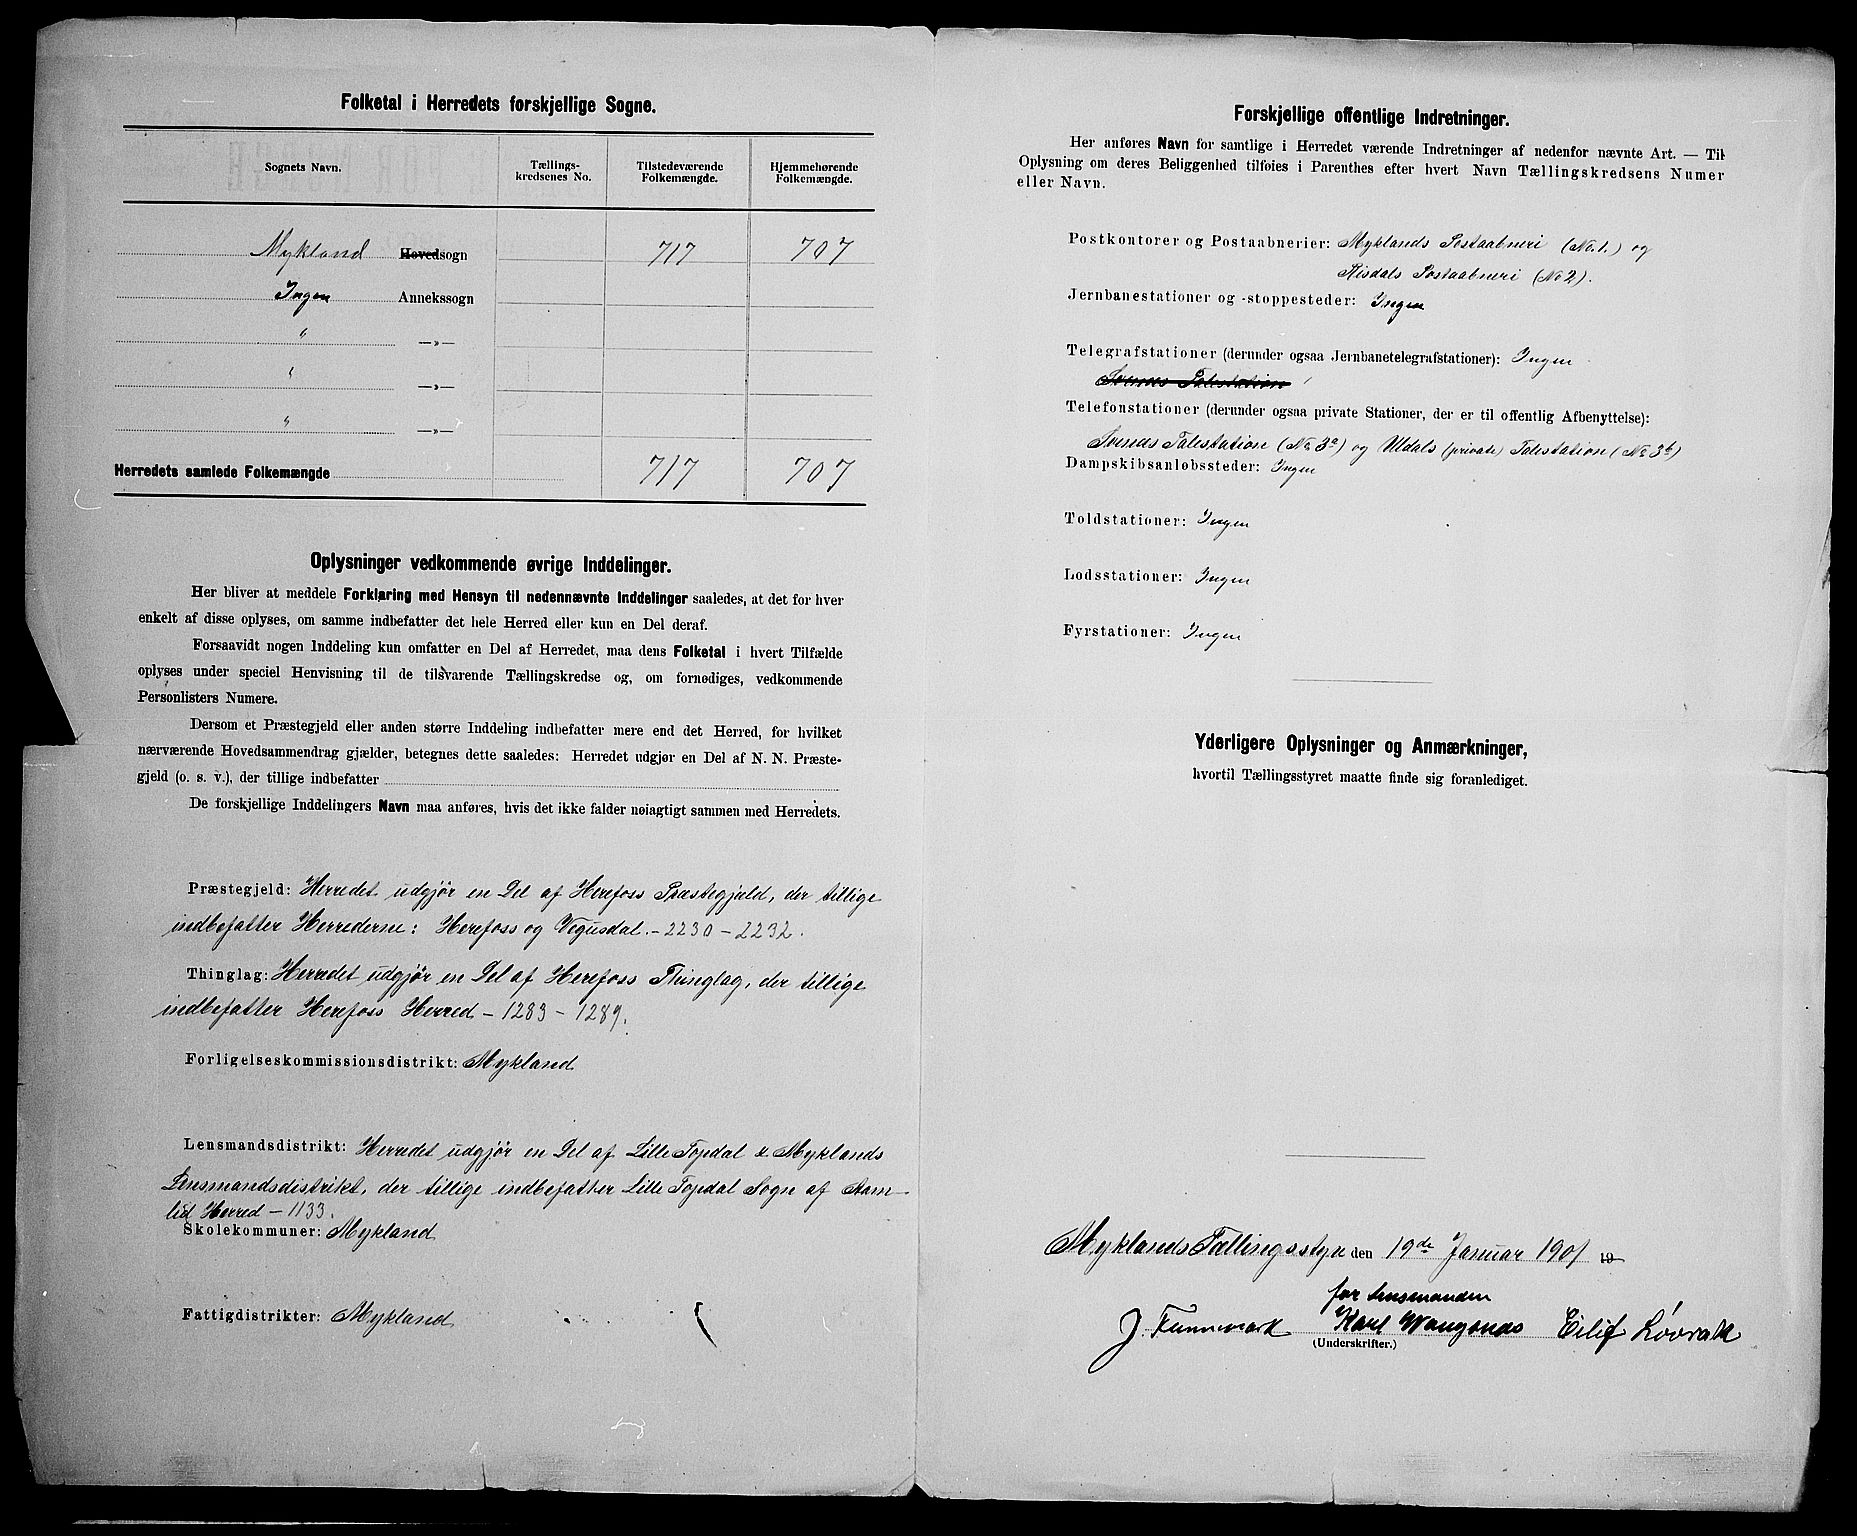 Folketal i Herredets forskjellige Sogne.
Sognets Navn. Tællings-kredsenes No. Tilstedeværende Folkemængde. Hjemmehørende Folkemængde.
Mykland Hovedsogn 717 707
Ingen Annekssogn
" —»—
" —»—
" —»—
Herredets samlede Folkemængde 717 707
Oplysninger vedkommende øvrige Inddelinger.
Her bliver at meddele Forklaring med Hensyn til nedennævnte Inddelinger saaledes, at det for hver
enkelt af disse oplyses, om samme indbefatter det hele Herred eller kun en Del deraf.
Forsaavidt nogen Inddeling kun omfatter en Del af Herredet, maa dens Folketal i hvert Tilfælde
oplyses under speciel Henvisning til de tilsvarende Tællingskredse og, om fornødiges, vedkommende
Personlisters Numere.
Dersom et Præstegjeld eller anden større Inddeling indbefatter mere end det Herred, for hvilket
nærværende Hovedsammendrag gjælder, betegnes dette saaledes: Herredet udgjør en Del af N. N. Præste-
gjeld (o. s. v.), der tillige indbefatter
De forskjellige Inddelingers Navn maa anføres, hvis det ikke falder nøiagtigt sammen med Herredets.
Præstegjeld: Herredet udgjør en Del af Herefoss Præstegjæld, der tillige
indbefatter Herrederne: Herefoss og Vegusdal. - 2230 - 2232.
Thinglag: Herredet udgjør en Del af Herefoss Thinglag, der tillige
indbefatter Herefoss Herred - 1283 - 1289.
Forligelseskommissionsdistrikt: Mykland
Lensmandsdistrikt: Herredet udgjør en Del af Lille Topdal & Myklands
Lensmandsdistrikt, der tillige indbefatter Lille Topdal Sogn af Aam-
lid Herred - 1133.
Skolekommuner: Mykland
Fattigdistrikter: Mykland
Forskjellige offentlige Indretninger.
Her anføres Navn for samtlige i Herredet værende Indretninger af nedenfor nævnte Art. — Til
Oplysning om deres Beliggenhed tilføies i Parenthes efter hvert Navn Tællingskredsens Numer
eller Navn.
Postkontorer og Postaabnerier: Myklands Postaabneri (No. 1.) og
Risdals Postaabneri (No 2).
Jernbanestationer og -stoppesteder: Ingen
Telegrafstationer (derunder ogsaa Jernbanetelegrafstationer): Ingen
Svenes Talestation
Telefonstationer (derunder ogsaa private Stationer, der er til offentlig Afbenyttelse):
Svenes Talestation (No 3a) og Uldals (private) Talestation (No 3b)
Dampskibsanløbssteder: Ingen
Toldstationer: Ingen
Lodsstationer: Ingen
Fyrstationer: Ingen
Yderligere Oplysninger og Anmærkninger,
hvortil Tællingsstyret maatte finde sig foranlediget.
Myklands Tællingsstyre den 19de Januar 1901 19
for Lensmanden
J. Tunnmark Karl Waagsnes Eilif Løvrak
(Underskrifter.)